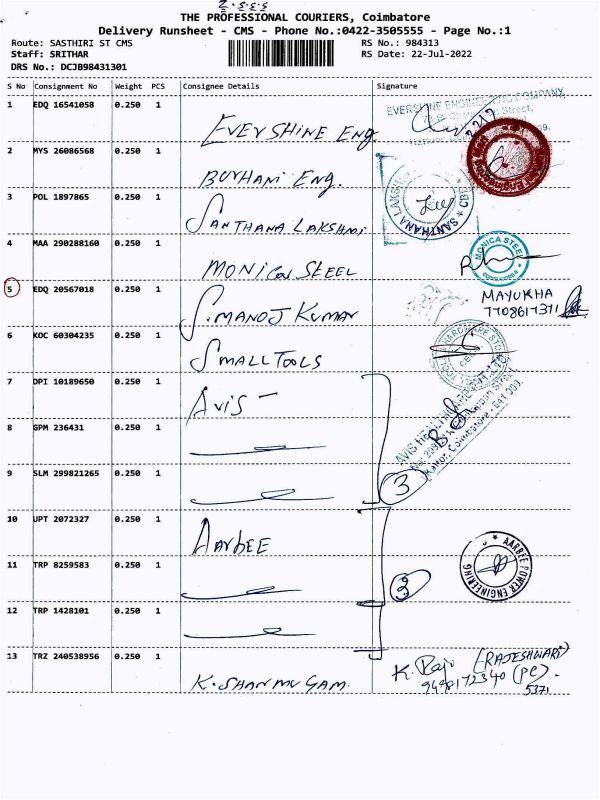 THE PROFESSIONAL COURIERS, Coimbatore
Delivery Runsheet - CMS - Phone No.:0422-3505555 - Page No.:1
Route: SASTHIRI ST CMS
RS No.: 984313
Staff: SRITHAR
RS Date: 22-Jul-2022
DRS No.: DCJB98431301
S No Consignment No Weight PCS Consignee Details Signature
1 EDQ 16541058 0.250 1 EVERSHINE Eng.
EVERSHINE ENGINEERING COMPANY
2 MYS 26086568 0.250 1 BURHANI Eng.
3 POL 1897865 0.250 1 SANTHANA LAKSHMI
SANTHANA LAKSHMI
4 MAA 290288160 0.250 1 MONICA STEEL
MONICA STEEL
5 EDQ 20567018 0.250 1 S.MANOJ KUMAR
MAYUKHA
7708617371
6 KOC 60304235 0.250 1 SMALL TOOLS
HARDWARE STORE
7 DPI 10189650 0.250 1 AVIS
8 GPM 236431 0.250 1
9 SLM 299821265 0.250 1
3
10 UPT 2072327 0.250 1 AARBEE
AARBEE POWER ENGINEERING
11 TRP 8259583 0.250 1
3
12 TRP 1428101 0.250 1
13 TRZ 240538956 0.250 1 K.SHANMUGAM
K. Raji (RAJESHWARI)
(PC)
5371